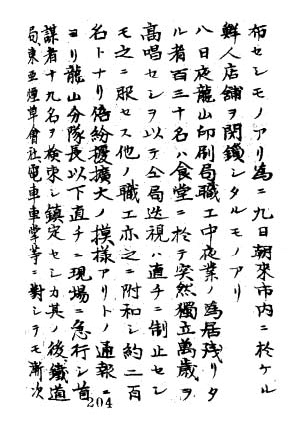 布セシモノアリ為ニ九日朝來市内ニ於ケル
鮮人店舖ヲ閉鎖シタルモノアリ
八日夜龍山印刷局職工中夜業ノ為居残リタ
ル者百三十名ハ食堂ニ於テ突然獨立萬歳ヲ
髙唱セシヲ以テ仝局巡視ハ直チニ制止セシ
モ之ニ服セス他ノ職工亦之ニ附和シ約二百
名トナリ倍紛擾擴大ノ模樣アリトノ通報ニ
ヨリ龍山分隊長以下直チニ現場ニ急行シ首
謀者十九名ヲ檢束シ鎮定セシカ其ノ後鐵道
局東亜煙草會社電車車掌等ニ對シテモ漸次
204